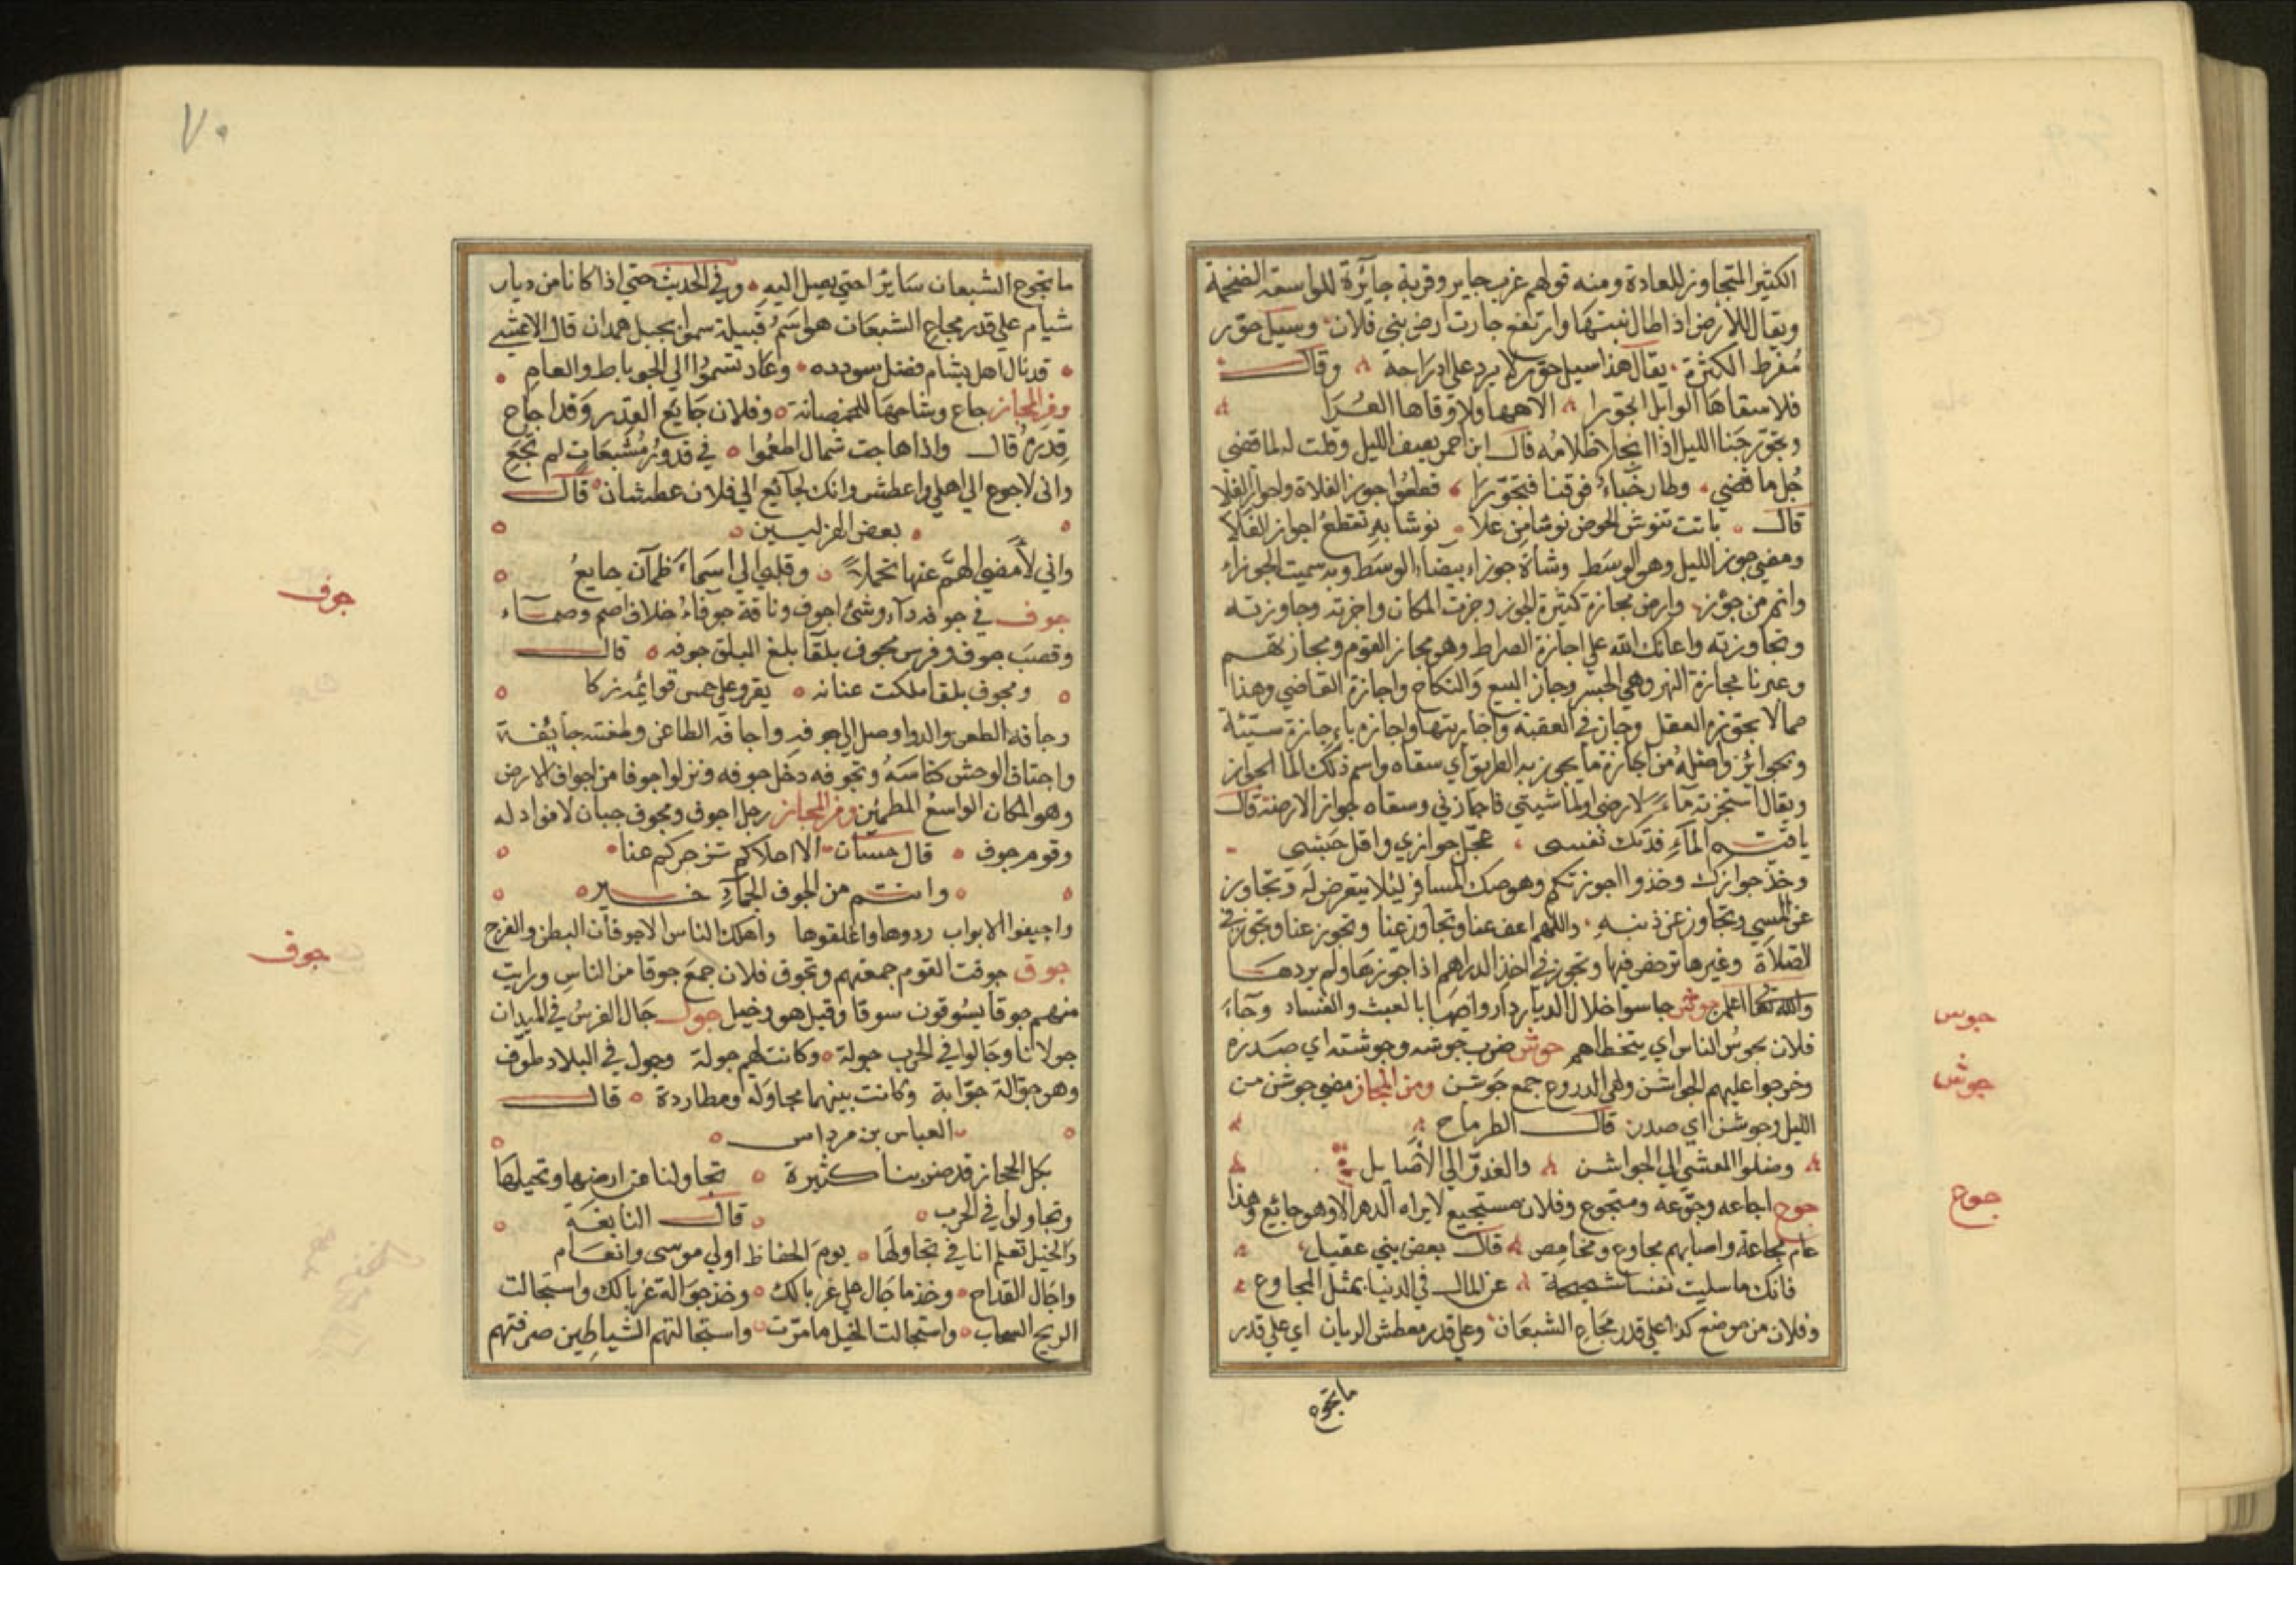 الكثير المتجاوز للعادة ومنه قولهم غرب جاير وقربة جآئرة للواسعة الضخمة
ويقال للارض اذا طال نبتها وارتفع جارت ارض بني فلان وسيل جوّر
مُفرط الكثرة يقال هذا سيل جوّر لا يرد على ادراجه وقال
فلا سقاها الوابل الجوّرا الاهها ولا وقاها العُرّا
وتجوّر جنا الليل اذا انجلا ظلامُه قال ابن احمر يصف الليل وقلت له لما قضى
جُل ما قضى وطار خباء فوقنا فتجوّرا قطعُوا جوز الفلاة واجواز الفلا
قال باتت تنوش الحوض نوشا من علا نوشا به تقطعُ اجواز الفلا
ومضى جوز الليل وهو الوسط وشاة جوزاء بيضاء الوسط وبه سميت الجوزاء
وانه من جوز وارض مجازة كثيرة الجوز وجزت المكان واجزته وجاوزته
وتجاوزته واعانك الله على اجازة الصراط وهو مجاز القوم ومجازتهم
وعبرنا مجازة النهر وهي الجسر وجاز البيع والنكاح واجازة القاضي وهذا
مما لا يجوّزه العقل وجاز في العقبة واجازتها واجازه باء جازة سنيّة
وبجوائز واصلُه من اجازة ما يجوز به الطريق اي سقاه واسم ذلك الما الجواز
ويقال استجزته مآءً لارضى او لماشيتي فاجازني وسقاه جواز الارضه قال
يا قيّه المآءِ فدتك نفسى عجّل جوازي واقل حبسى
وخذ جوازك وخذوا اجوزتكم وهو صك المسافر ليلا يتعرض له وتجاوز
عن المسي وتجاوز عن ذنبه واللهم اعف عنا وتجاوز عنا وتجوز عنا وتجوز في
الصلاة وغيرها ترخص فيها وتجوز في اخذ الدراهم اذا جوّزها ولم يردها
والله تعالى اعلم جوس جاسوا خلال الديار داروا فيها بالعبث والفساد وجآء
فلان يجوسُ الناس اي يتخطاهم جوش ضرب جوشه وجوشنه اي صدره
وخرجوا عليهم الجواشن وهي الدروع جمع جوشن ومن المجاز مضى جوشن من
الليل وجوشن اي صدر قال الطرماح
وصلوا العشي الى الجواشن والغدوّ الى الأصايل
جوع اجاعه وجوّعه ومتجوع وفلان مستجيع لا يراه الدهر الا وهو جائع وهذا
عام مجاعة واصابهم مجاوع ومخامص قال بعض بني عقيل
فانك ما سليت نفسا شحيحة عن المال في الدنيا بمثل المجاوع
وفلان من موضع كذا على قدر مجَاع الشبعَان وعلى قدر معطش الريان اي على قدر
ما تجوع
جوس
جوش
جوع
٧٠
ما تجوع الشبعان سَايرا حتى يصل اليه وفي الحديث حتى اذا كانا من ديار
شيام على قدر مجاع الشبعَان هو اسمُ قبيلة سموا بجبل همدان قال الاعشى
قد نال اهل شبام فضل سودده وعاد تسموا الى الجوباط والعام
ومن المجاز جاع وشاحها للخمصانة وفلان جَايع القدر وَقد اجاع
قِدرهُ قال واذا هاجت شمال اطعموا في قدورٍ مُشبعَاتٍ لم تجَعِ
واني لاجوع الى اهلي واعطش وانك لجآئع الى فلان عطشان قال
بعض الغزليين
واني لأمضي الهمّ عنها تجملاً وقلبي الى اسمَاء ظمآن جايعُ
جوف في جوافه دآء وشئ اجوف وناقة جوفاءُ خلاف اصم وصمآء
وقصَب جوف وفرس مجوف بلقا بلغ البلق جوفه قال
ومجوف بلقا ملكت عنانه يعدو على خمس قوائمُه زكا
وجافه الطعن والدوا وصل الى جوفه واجافه الطاعن وطعنته جايُفة
واجتاف الوحش كناسَهُ وتجوفه دخل جوفه ونزلوا جوفا من اجواف الارض
وهو المكان الواسعُ المطمئن ومن المجاز رجل اجوف ومجوف جبان لا فواد له
وقوم جوف قال حسان الا احلامكم تزجركم عنا
وانتم من الجوف الجمآخير
واجيفوا الابواب ردوها واغلقوها واهلك الناس الاجوفان البطن والفرج
جوق جوقت القوم جمعتهم وتجوق فلان جمعَ جوقا من الناس ورايت
منهم جوقا يسُوقون سوقا وقيل هو دخيل جول جَال الفرسُ في الميدان
جولانا وجَالوا في الحرب جولة وكانت لهم جولة وجول في البلاد طوّف
وهو جوّالة جوّابة وكانت بينهما مجاوَله ومطاردة قال
العباس بن مرداس
بكل الحجاز قد ضربنا كثيرة تجاولنا عن ارضها ونحيلها
وتجاولوا في الحرب قال النابغَة
والخيل تعلم انا في تجاولهَا يومَ الحفاظ اولي موسى وانعَام
واجَال القداح وخذ ما جَال على غربالك وخذ جوَالة غربالك واستجالت
الريح السحاب واستجالت الخيل ما مرّت واستجالتهم الشياطين صرفتهم
جوف
جوق